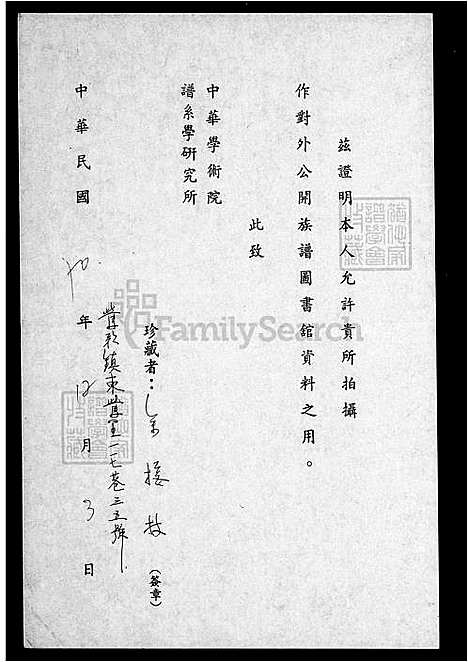 茲證明本人允許貴所拍攝
作對外公開族譜圖書舘資料之用。
此致
中華學術院
譜系學研究所
珍藏者：
接枝
(簽章)
鎮東
里一七巷三五號
中華民國70年12月3日
FamilySearch